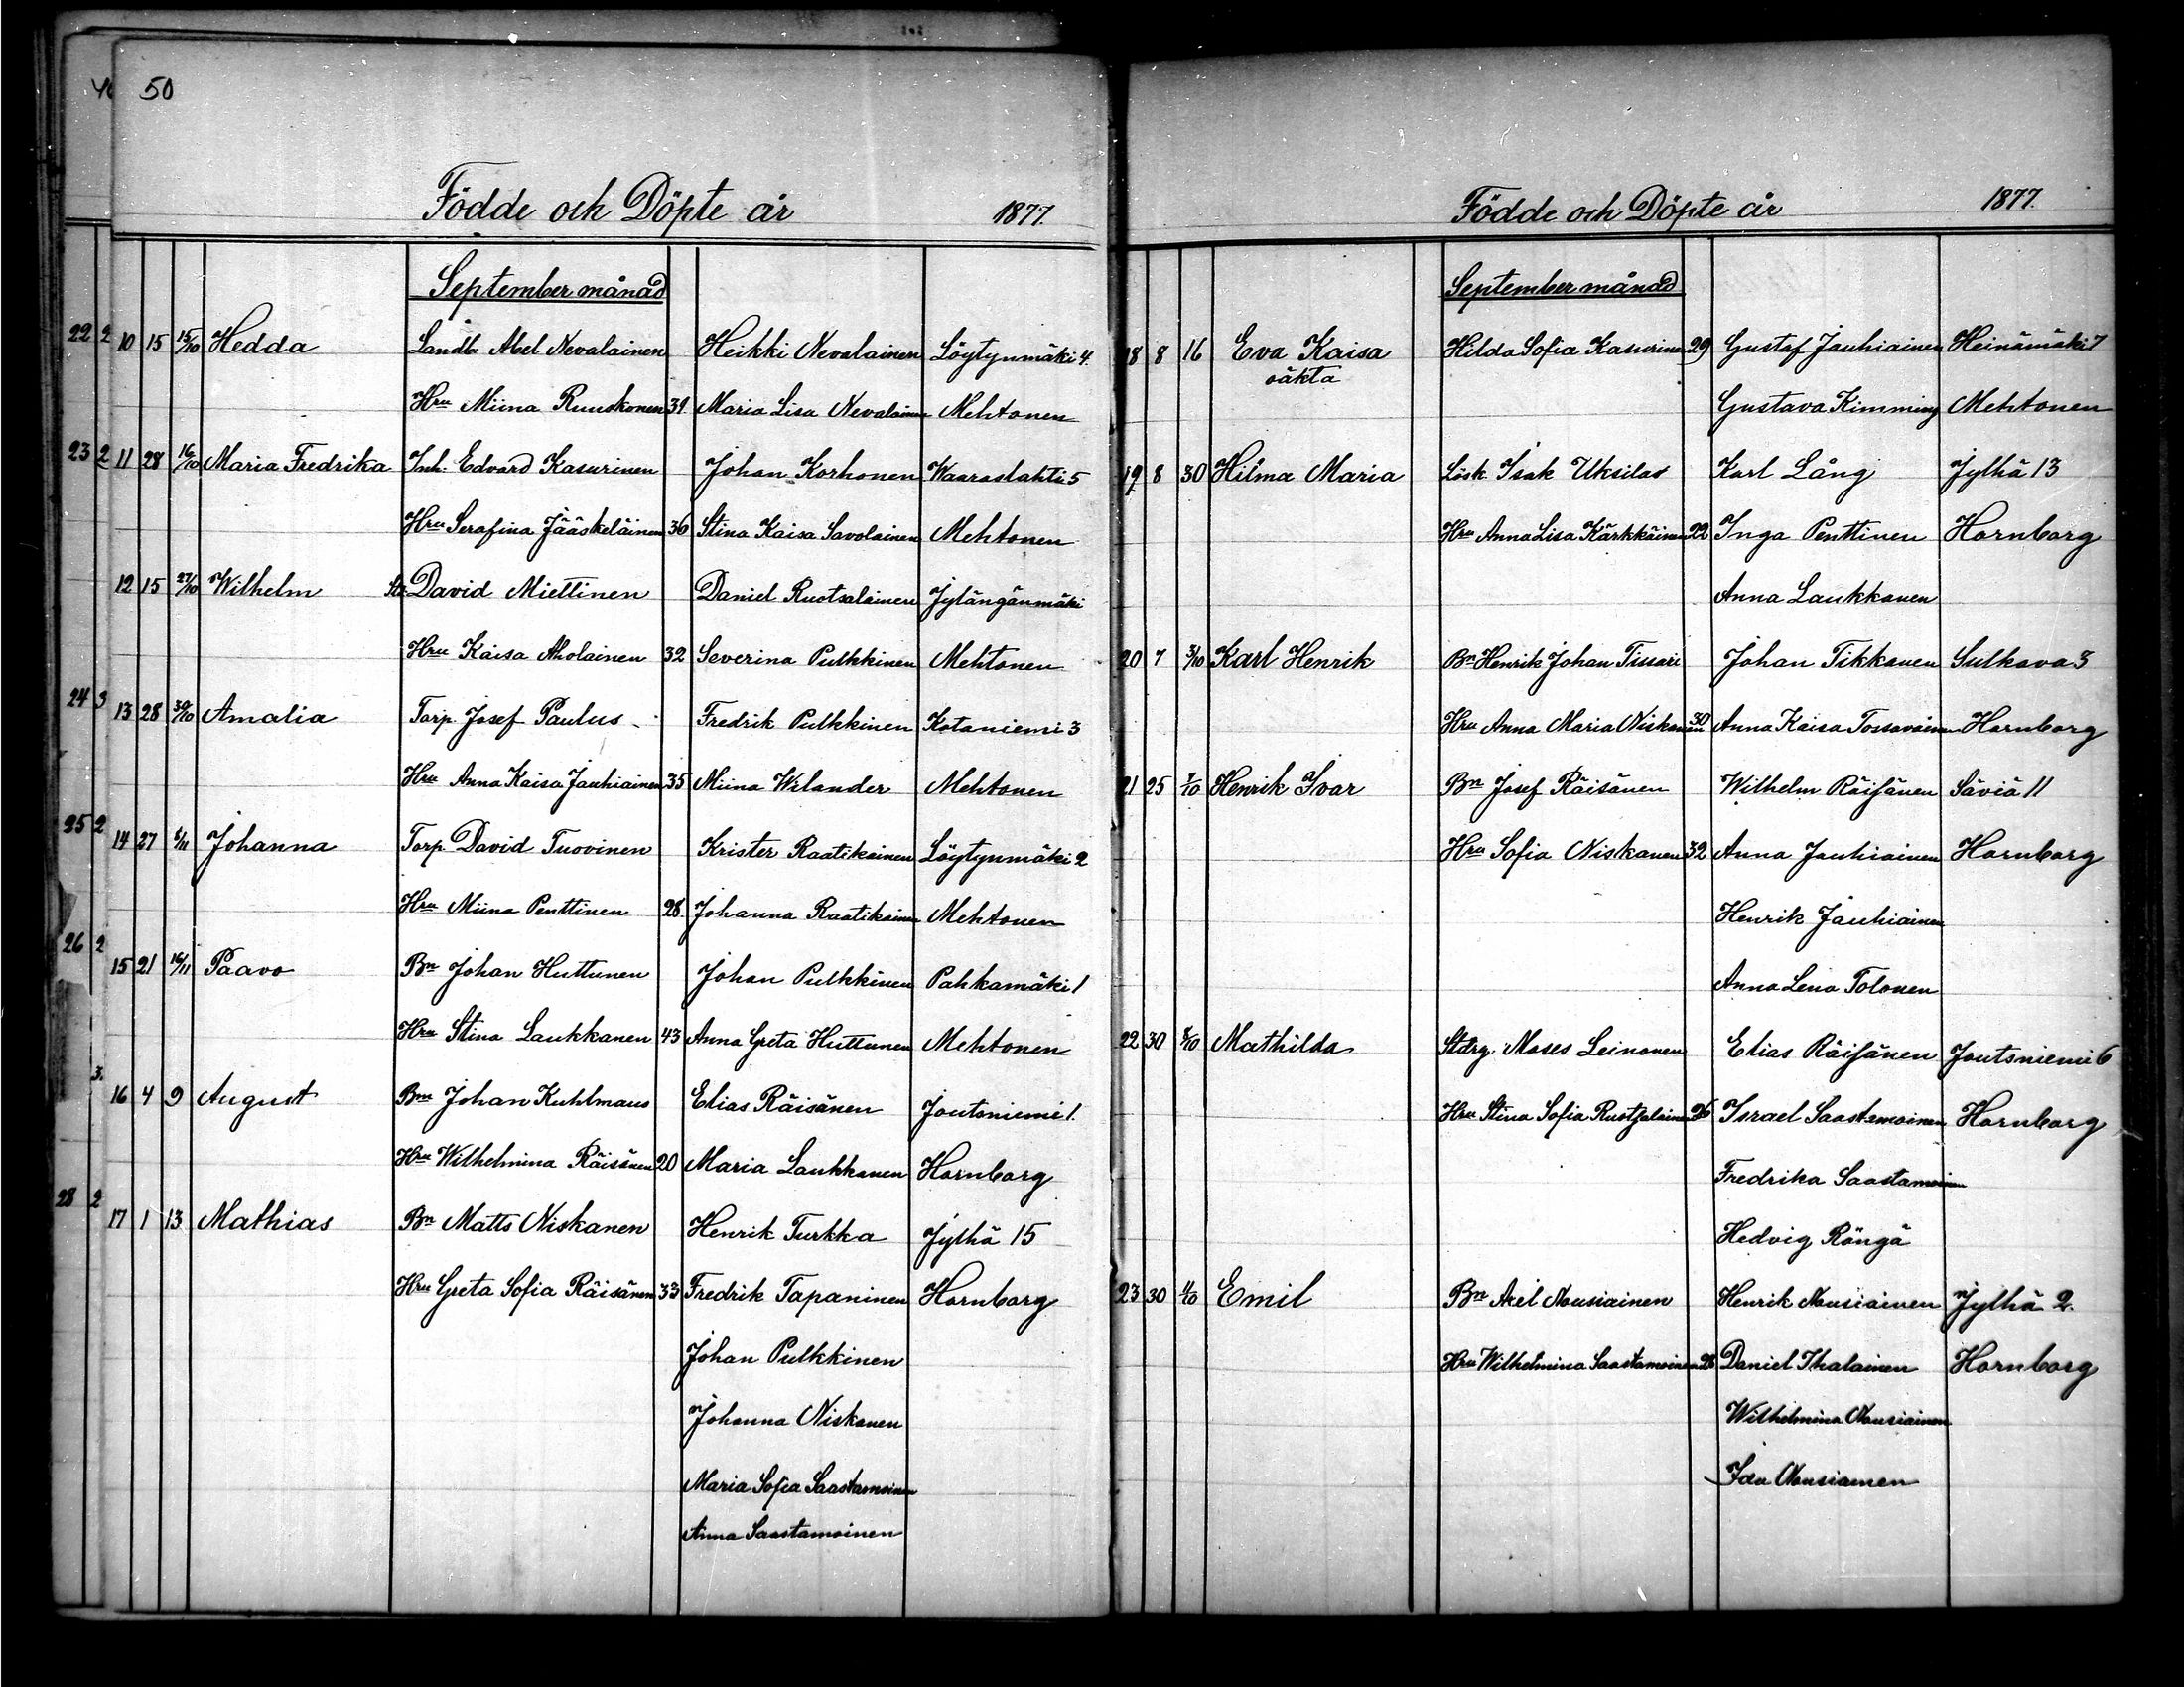 50
Födde och Döpte år 1877.
September månad
22 2 10 15 15/10 Hedda Landb. Abel Nevalainen Heikki Nevalainen Löytynmäki 4.
Hru Miina Ruuskonen 34 Maria Lisa Nevalainen Mehtonen
23 2 11 28 16/10 Maria Fredrika Inh. Edvard Kasurinen Johan Korhonen Waaraslahti 5
Hru Serafina Jääskeläinen 36 Stina Kaisa Savolainen Mehtonen
12 15 27/10 Wilhelm David Miettinen Daniel Ruotsalainen Jylängänmäki
Hru Kaisa Aholainen 32 Severina Pulkkinen Mehtonen
24 3 13 28 30/10 Amalia Torp. Josef Paulus Fredrik Pulkkinen Kotaniemi 3
Hru Anna Kaisa Jauhiainen 35 Miina Welander Mehtonen
25 2 14 27 Johanna Torp. David Tuovinen Krister Raatikainen Löytynmäki 2
Hru Miina Penttinen 28. Johanna Raatikainen Mehtonen
26 2 15 21 16/11 Paavo Bn Johan Huttunen Johan Pulkkinen Pahkamäki 1
Hru Stina Laukkanen 43 Anna Greta Huttunen Mehtonen
3. 16 4 9 August Bm Johan Kuhlmaus Elias Räisänen Joutsniemi 1.
Hru Wilhelmina Räisänen 20 Maria Laukkanen Hornborg
28 2 17 1 13 Mathias Bn Matts Niskanen Henrik Turkka Jylhä 15
Hru Greta Sofia Räisänen 33 Fredrik Tapaninen Hornborg
Johan Pulkkinen
Johanna Niskanen
Maria Sofia Saastamoinen
Anna Saastamoinen
Födde och Döpte år 1877.
September månad
18 8 16 Eva Kaisa Hilda Sofia Kasurinen 29 Gustaf Jauhiainen Heinämäki 7
oäkta Gustava Kimming Mehtonen
19 8 30 Hilma Maria Lösk. Isak Uksilas Karl Lång Jylhä 13
Hru Anna Lisa Kärkkäinen 22 Inga Penttinen Hornborg
Anna Laukkanen
20 7 3/10 Karl Henrik Bn Henrik Johan Tissari Johan Tikkanen Sulkava 3
Hru Anna Maria Niskanen 30 Anna Kaisa Tossavainen Hornborg
21 25 7/10 Henrik Ivar Bn Josef Räisänen Wilhelm Räisänen Säviä 11
Hru Sofia Niskanen 32 Anna Jauhiainen Hornborg
Henrik Jauhiainen
Anna Lena Tolonen
22 30 8/10 Mathilda Stdrg. Moses Leinonen Elias Räisänen Joutsniemi 6
Hru Stina Sofia Ruotsalainen 26 Israel Saastamoinen Hornborg
Fredrika Saastamoinen
Hedvig Röngä
23 30 Emil Bn Axel Nousiainen Henrik Nousiainen Jylhä 2.
Hru Wilhelmina Saastamoinen 28 Daniel Ihalainen Hornborg
Wilhelmina Nousiainen
Ida Nousiainen